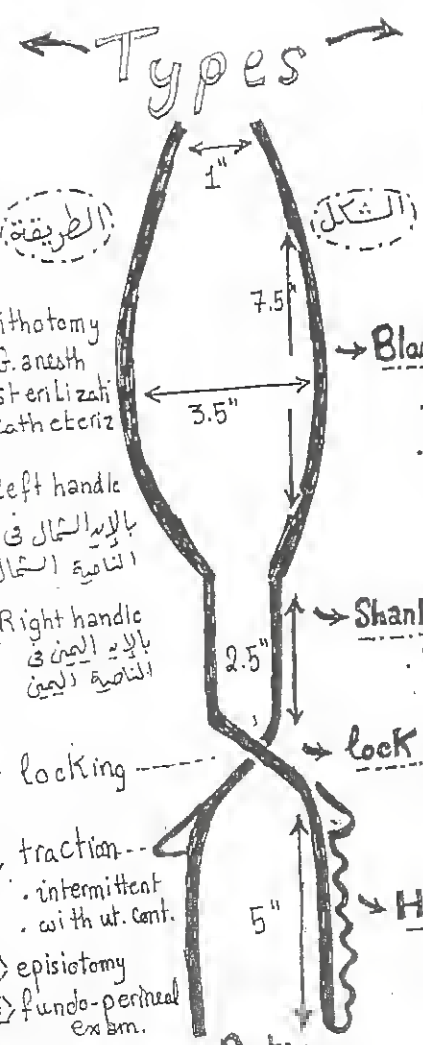 Types
1"
الطريقة
الشكل
7.5"
3.5"
ithotomy
G. anesth
sterilizati
catheteriz
Left handle
بالإيد الشمال فى
الناحية الشمال
Right handle
بالإيد اليمين فى
الناحية اليمين
Bla
Shan
2.5"
locking
lock
traction
. intermittent
. with ut. cont.
5"
H
episiotomy
fundo-perineal
exam.